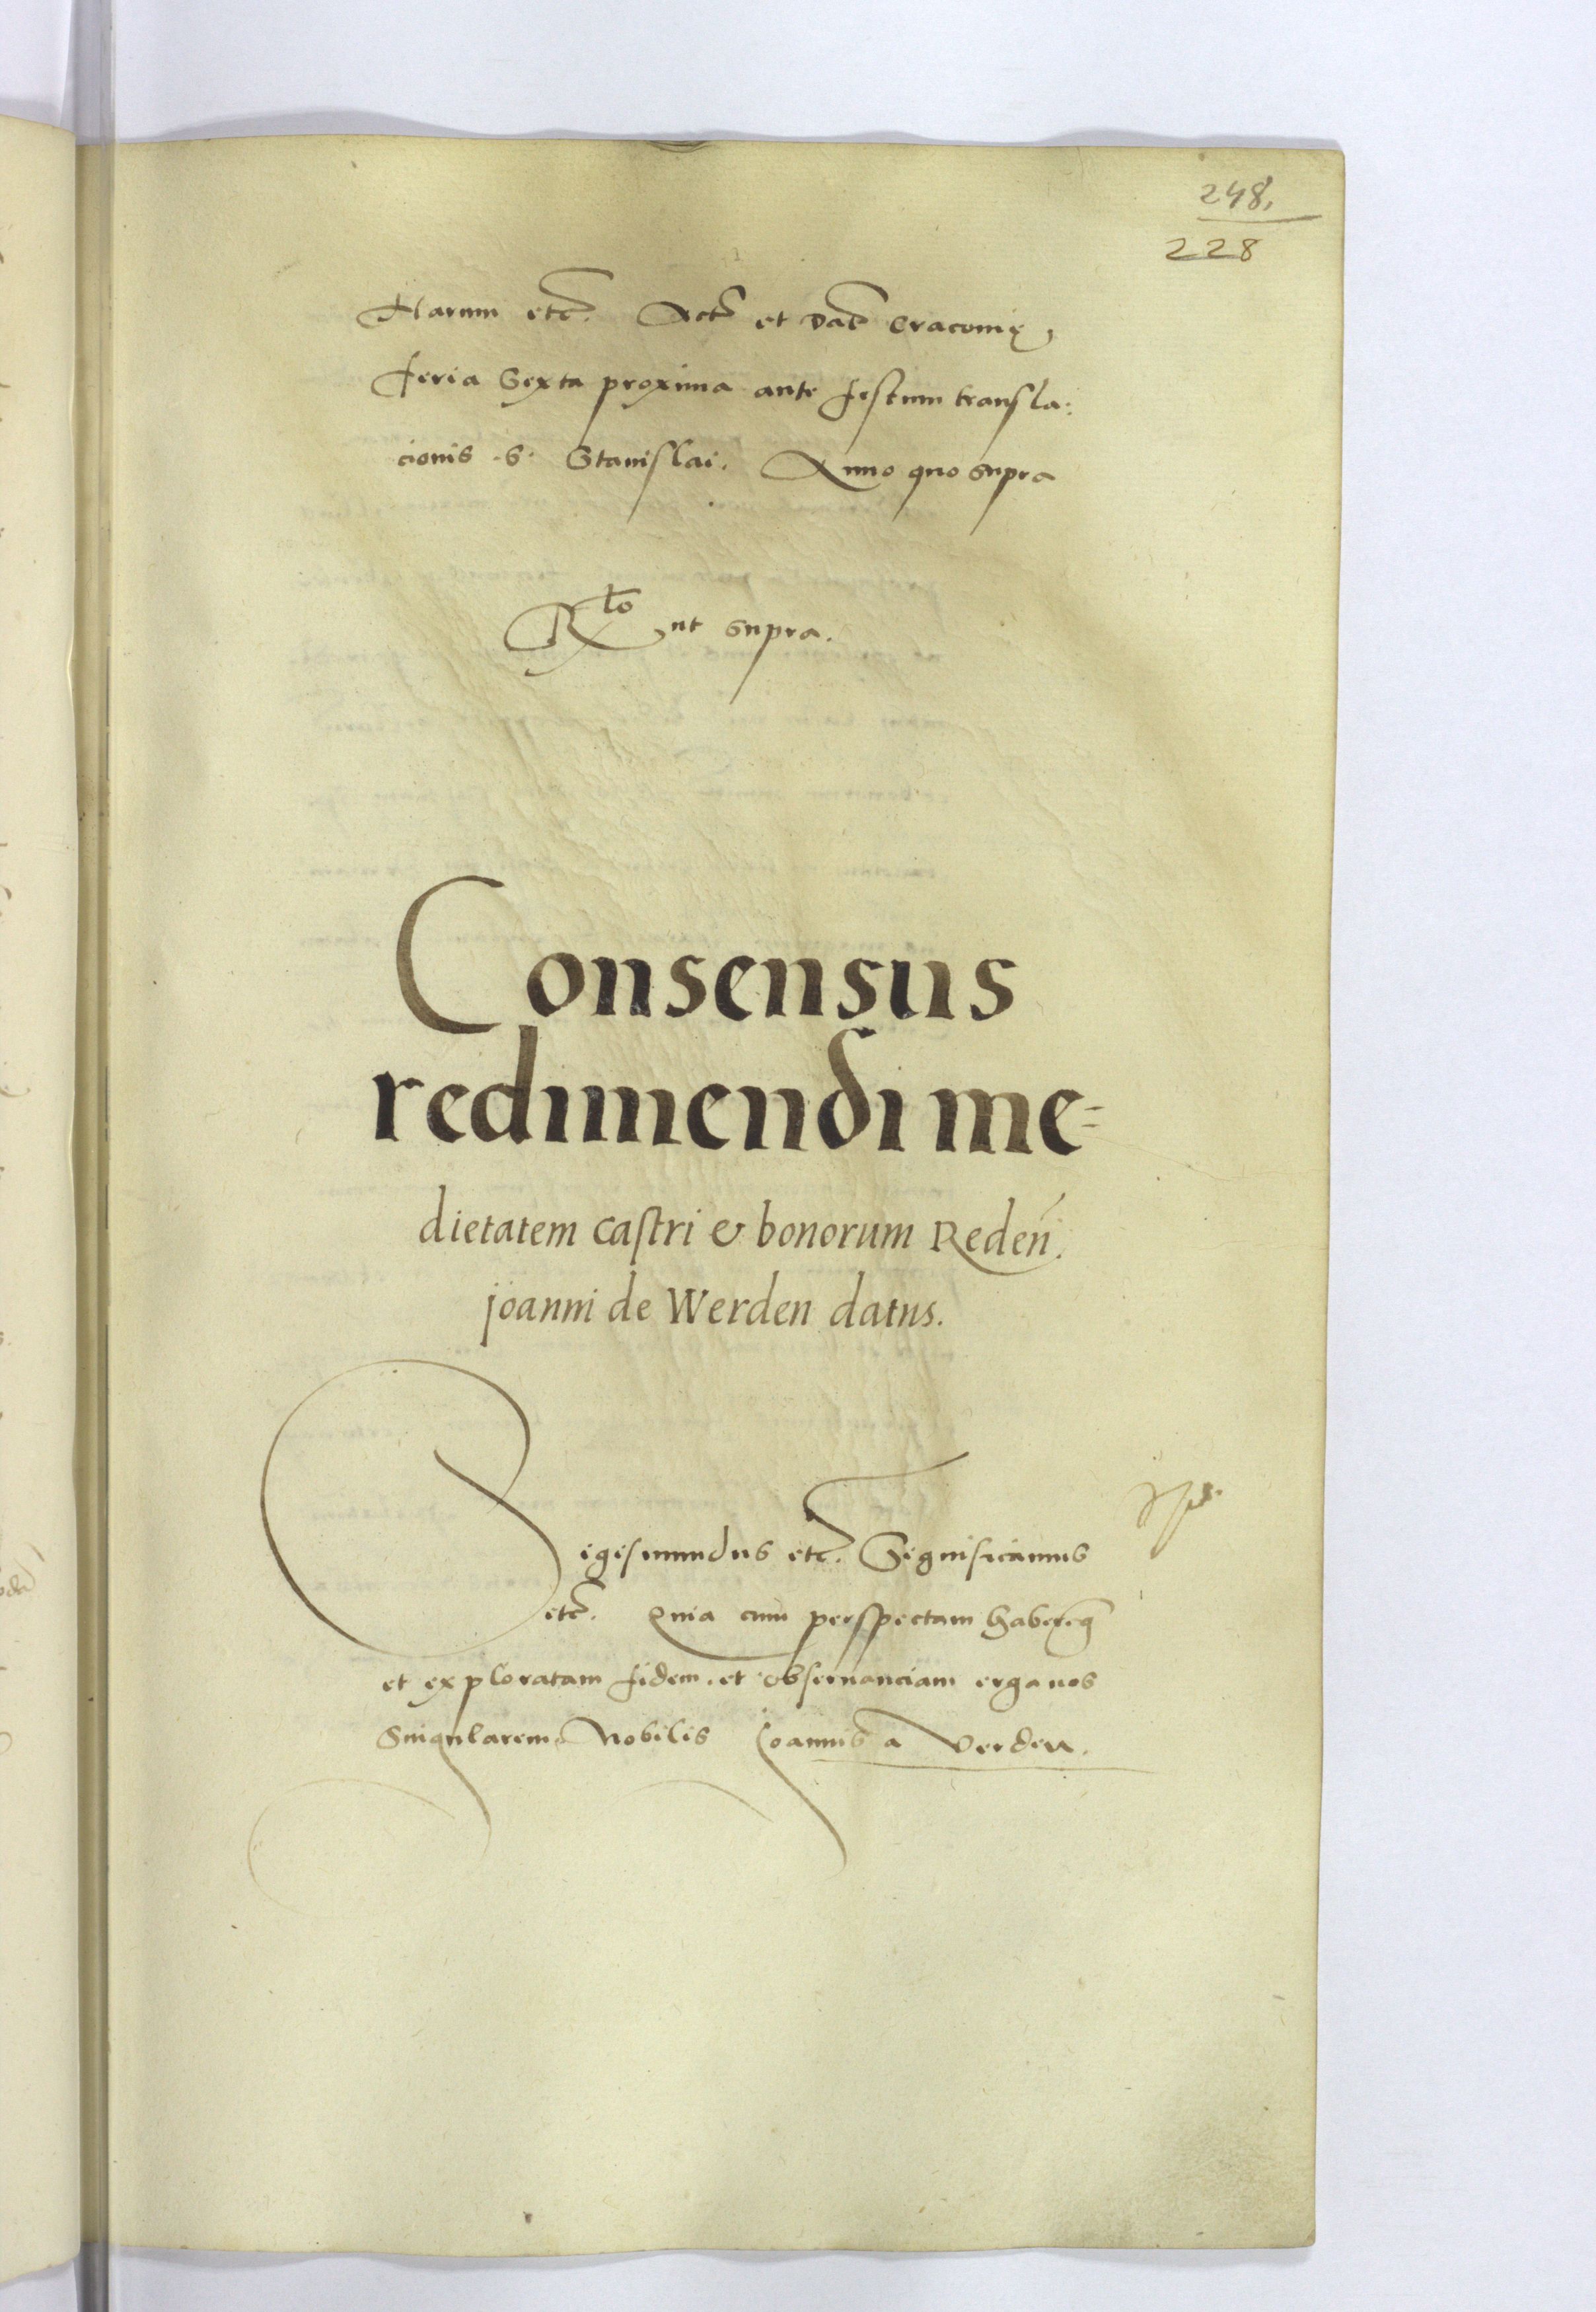 248.
228
Harum etc. Act et Dat Cracovię,
feria Sexta proxima ante festum transla:
cionis .S. Stanislai. Anno quo supra
Rlo ut supra.
Consensus
redimendi me=
dietatem castri & bonorum Reden.
joanni de Werden datus.
Sigismundus etc. Significamus
etc. Quia cum perspectam haberemus
et exploratam fidem, et observanciam erga nos
Singularem Nobilis Joannis a Verden.